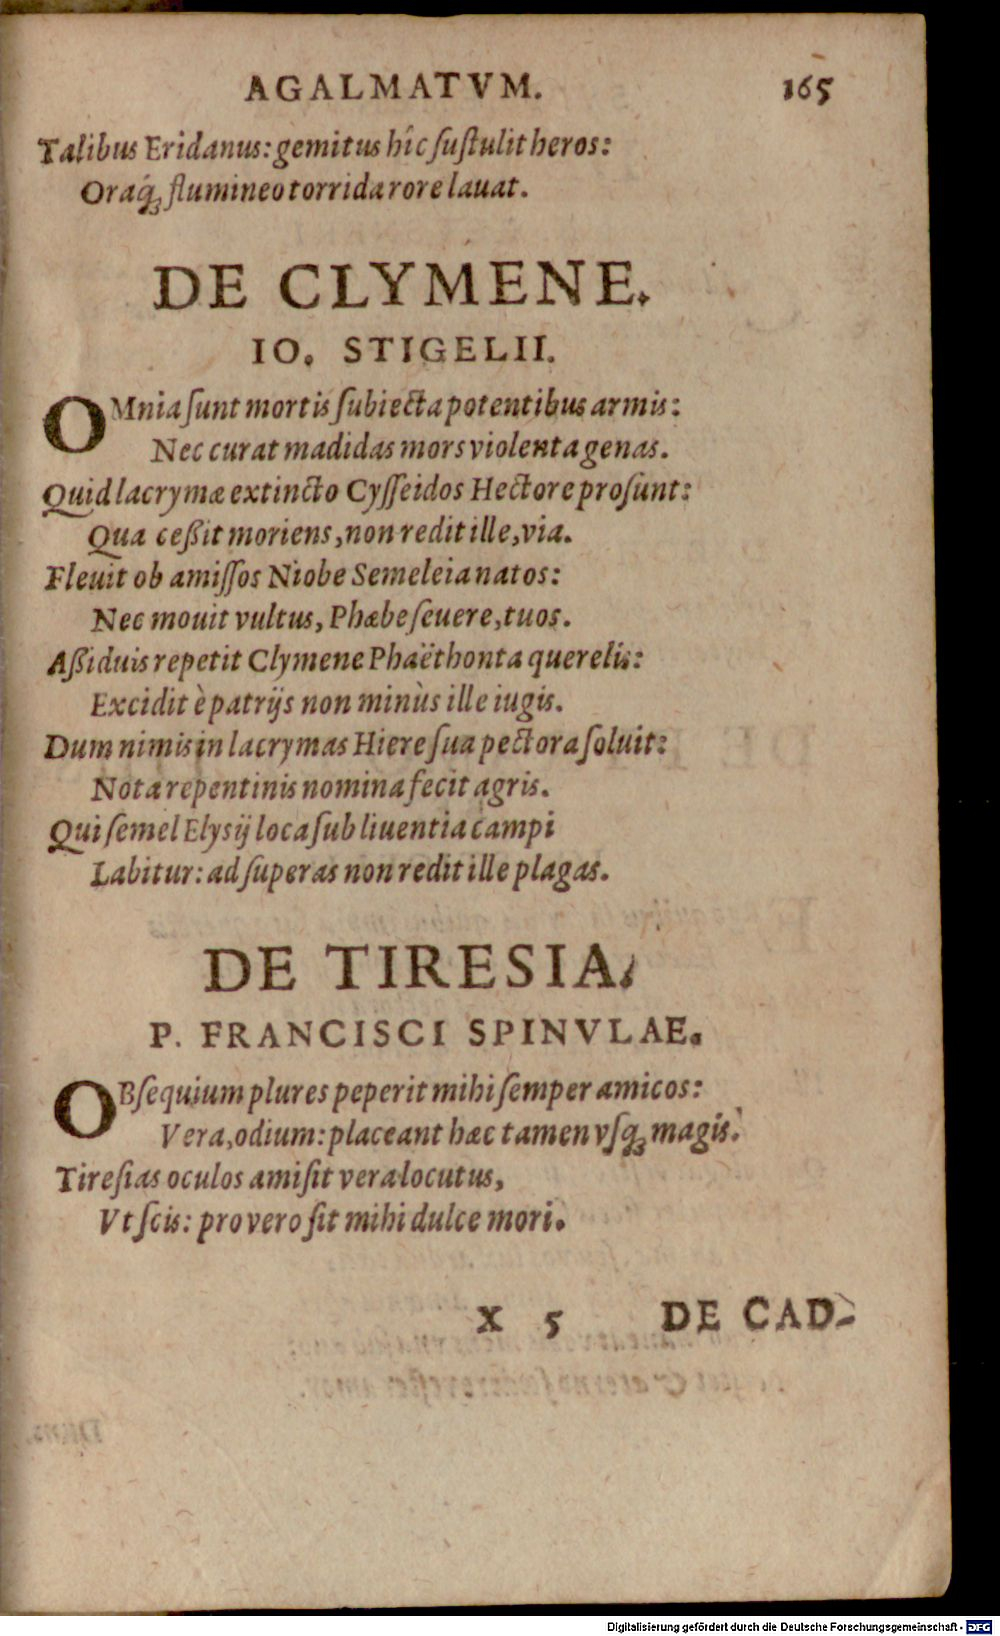 AGALMATVM. 165
Talibus Eridanus: gemitus hîc ſuſtulit heros:
Oraq́; flumineo torrida rore lauat.
DE CLYMENE.
IO. STIGELII.
OMnia ſunt mortis ſubiecta potentibus armis:
Nec curat madidas mors violenta genas.
Quid lacrymæ extincto Cyſſeidos Hectore proſunt:
Qua ceßit moriens, non redit ille, via.
Fleuit ob amiſſos Niobe Semeleia natos:
Nec mouit vultus, Phæbe ſeuere, tuos.
Aßiduis repetit Clymene Phaëthonta querelis:
Excidit è patrijs non minùs ille iugis.
Dum nimis in lacrymas Hiere ſua pectora ſoluit:
Nota repentinis nomina fecit agris.
Qui ſemel Elyſij loca ſub liuentia campi
Labitur: ad ſuperas non redit ille plagas.
DE TIRESIA.
P. FRANCISCI SPINVLAE.
OBſequium plures peperit mihi ſemper amicos:
Vera, odium: placeant hæc tamen vſq; magis.
Tireſias oculos amiſit vera locutus,
Vt ſcis: pro vero ſit mihi dulce mori.
X 5 DE CAD-
Digitalisierung gefördert durch die Deutsche Forschungsgemeinschaft - DFG